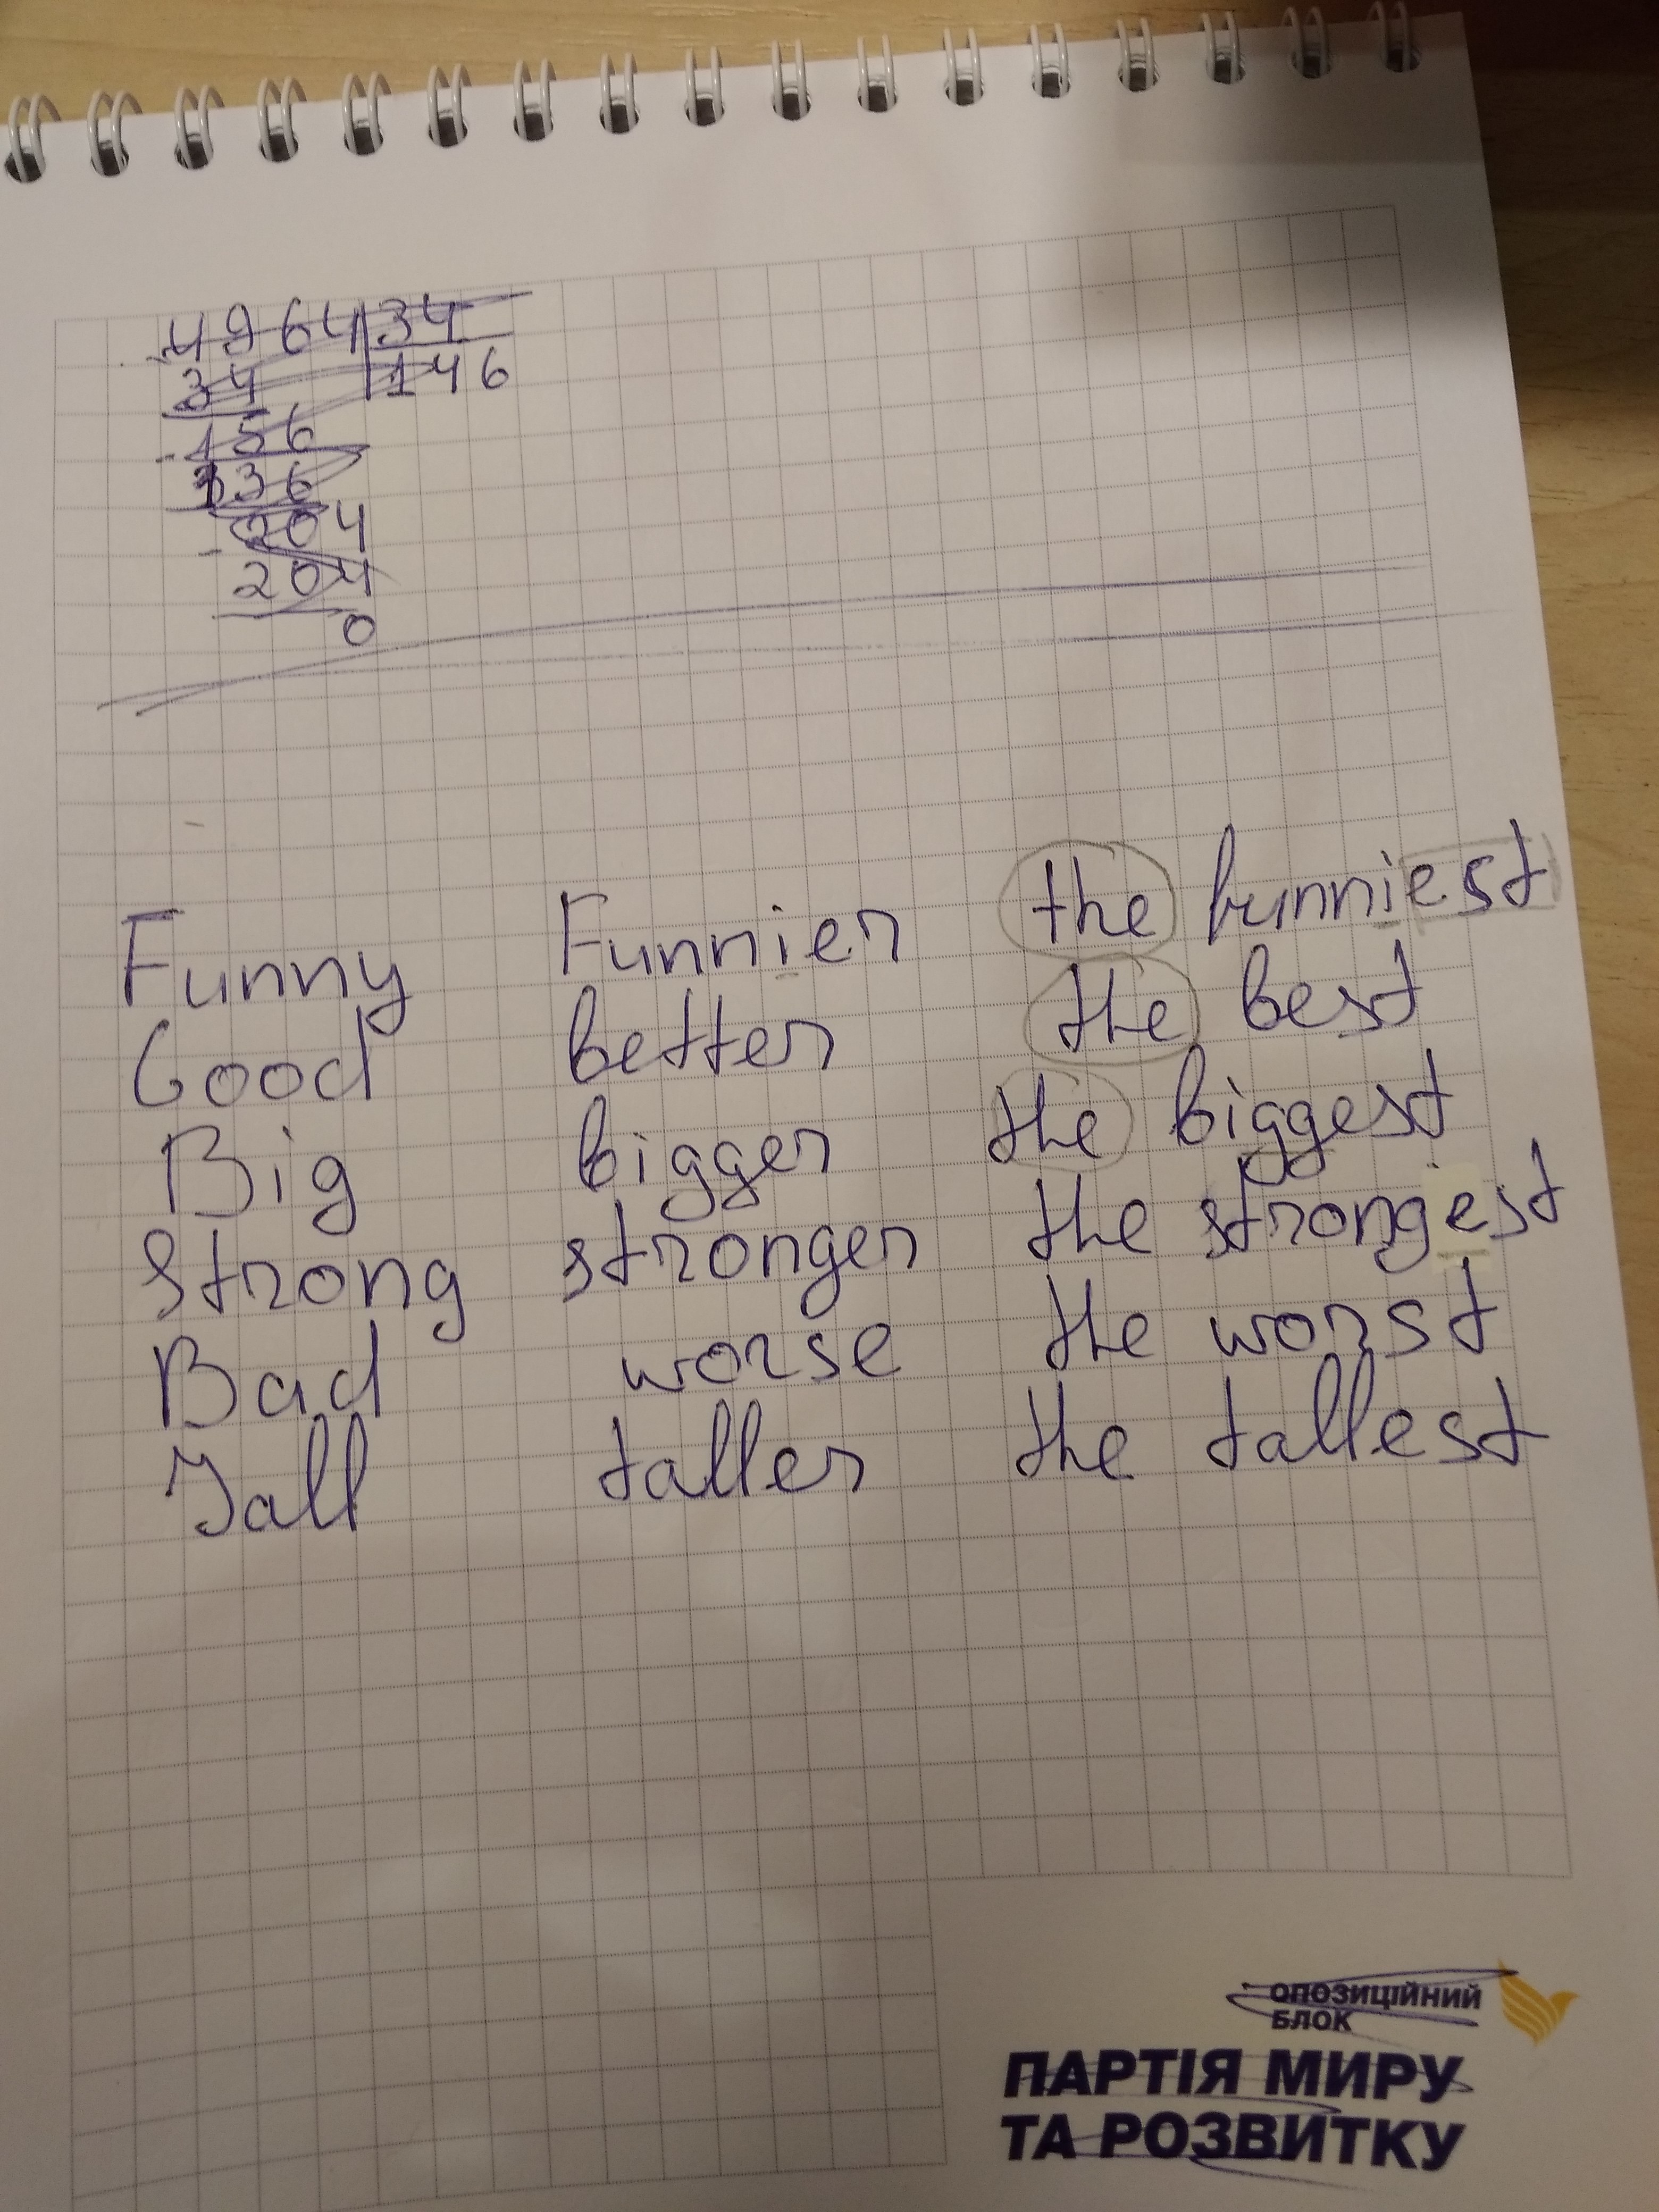 4964 34
34 146
156
136
204
204
0
Funny Funnier the funniest
Good better the best
Big bigger the biggest
Strong stronger the strongest
Bad worse the worst
Tall taller the tallest
ОПОЗИЦІЙНИЙ
БЛОК
ПАРТІЯ МИРУ
ТА РОЗВИТКУ